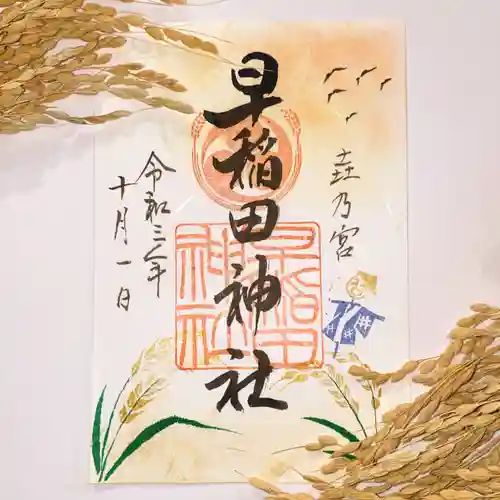 壵乃宮
早稲田神社
早稲田神社
令和三年
十月一日